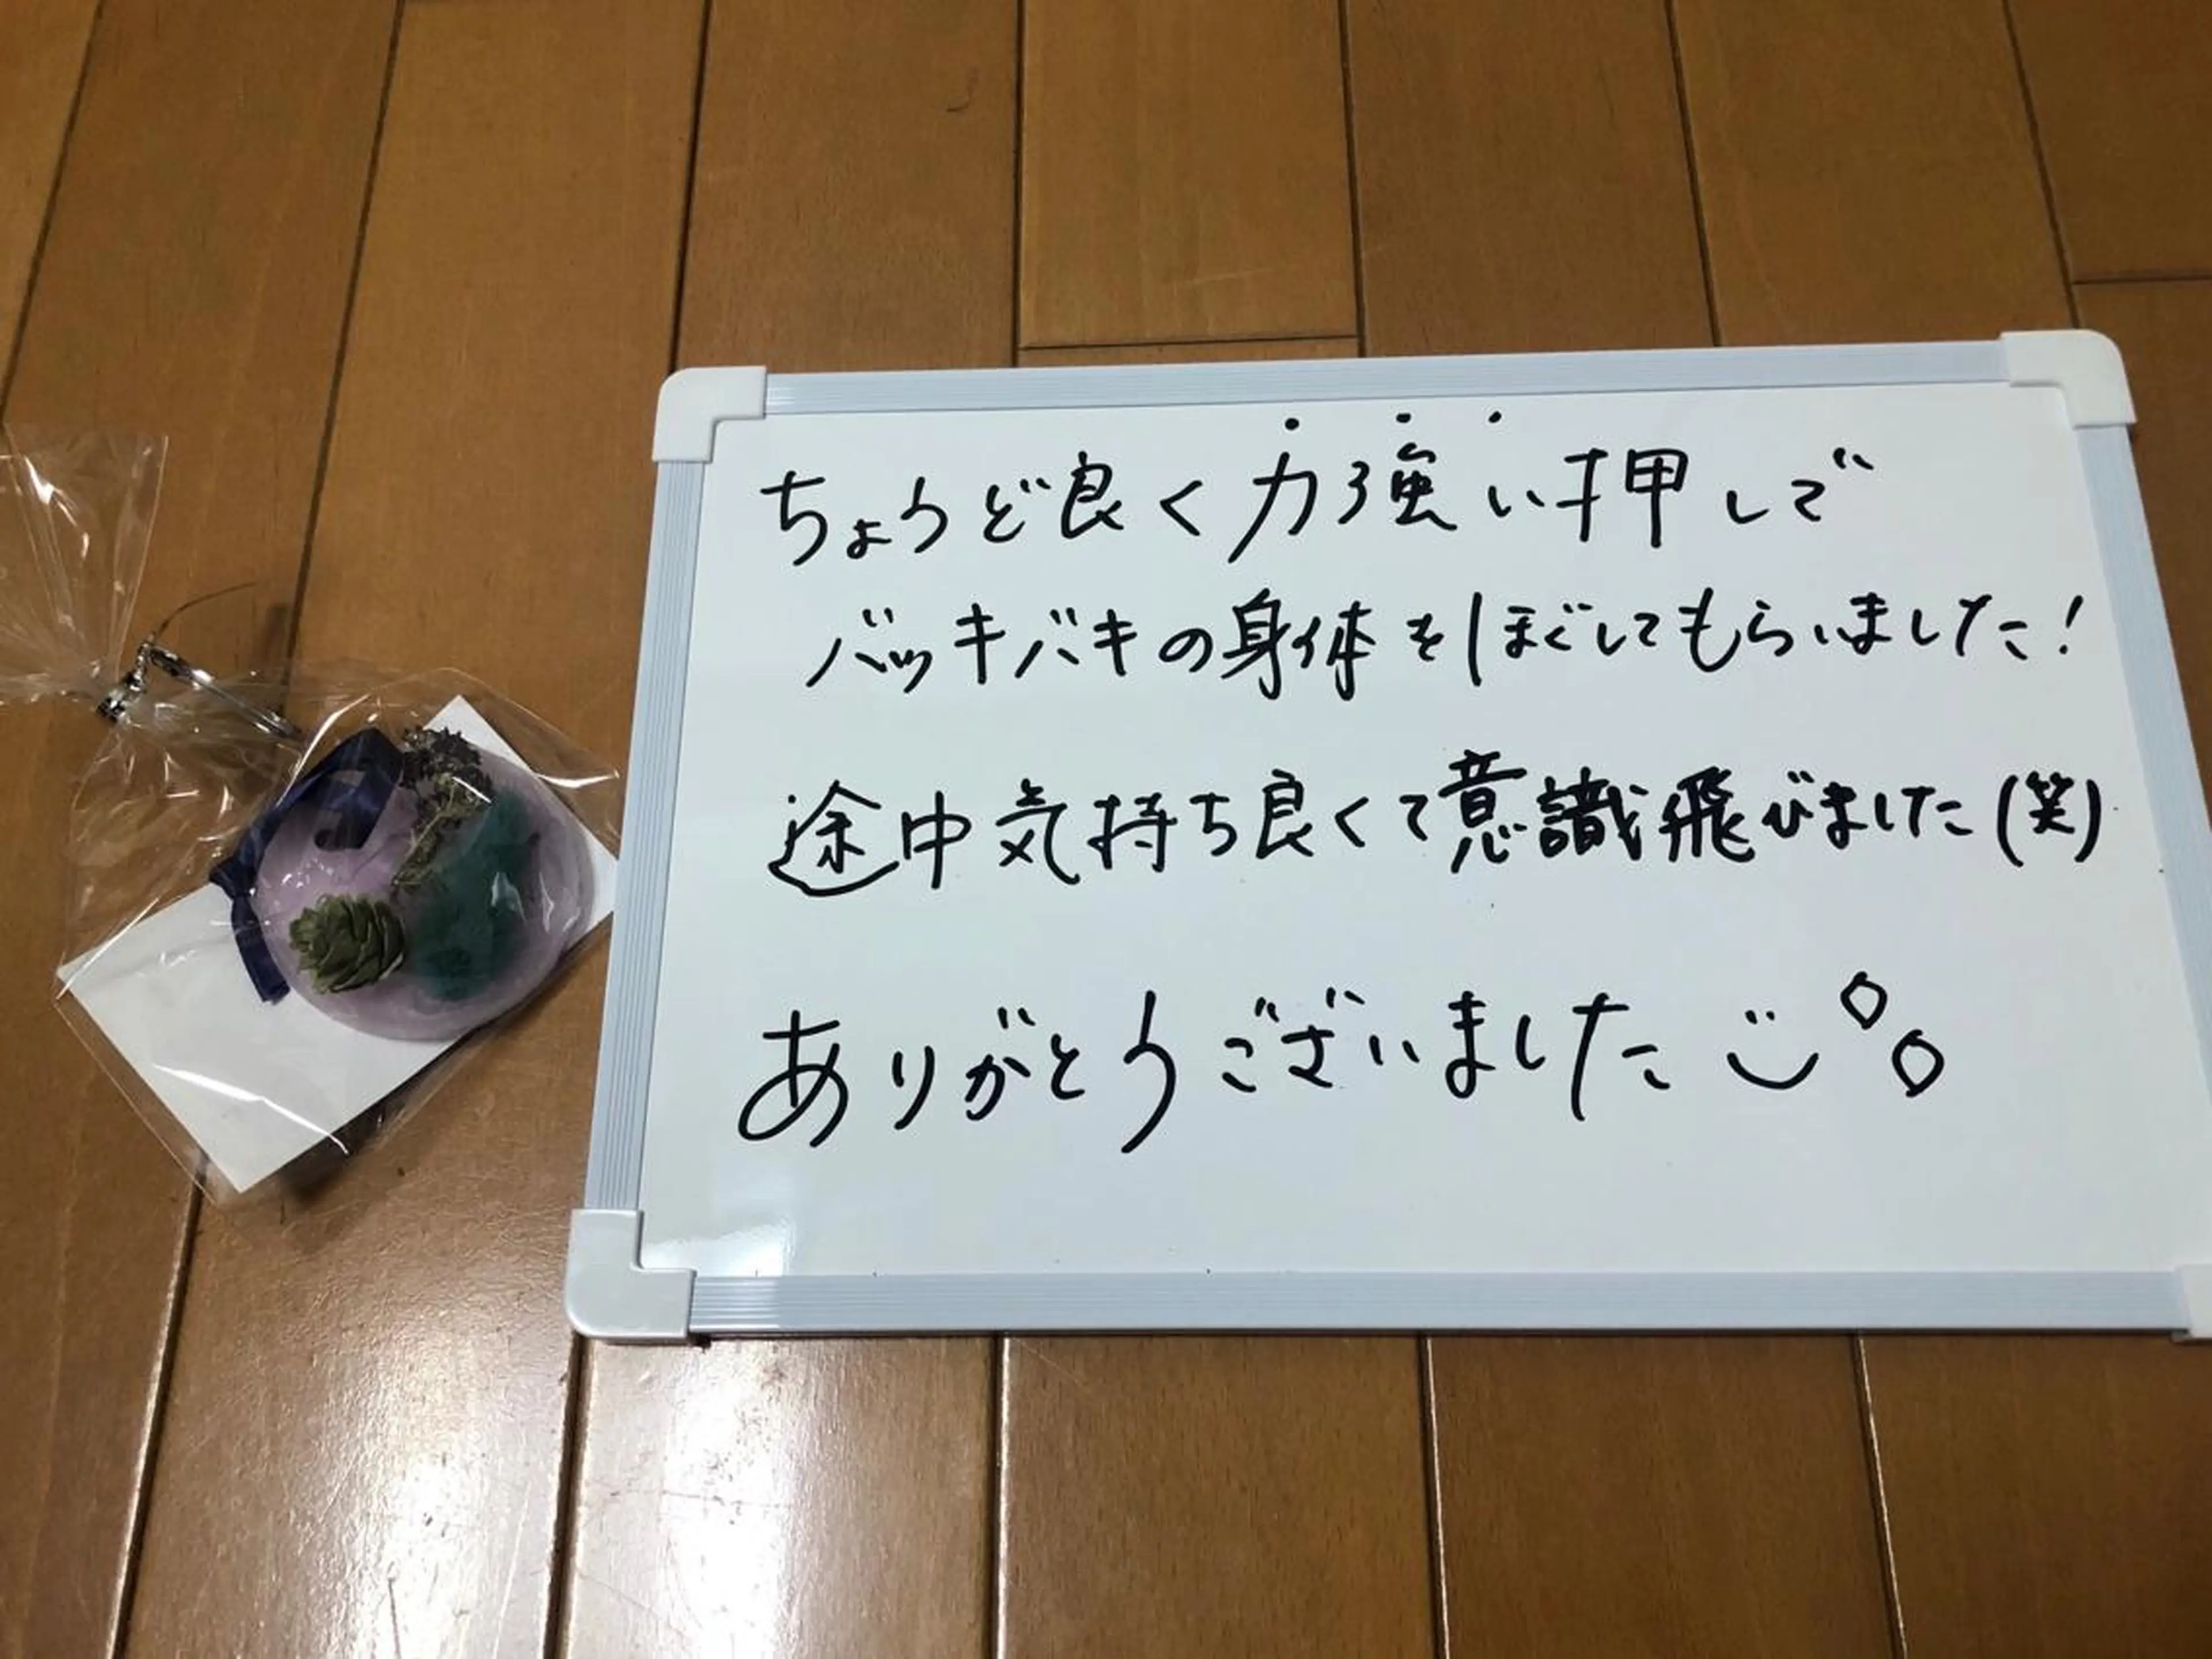 ちょうど良く力強い押しで
バッキバキの身体をほぐしてもらいました!
途中気持ち良くて意識飛びました(笑)
ありがとうございました